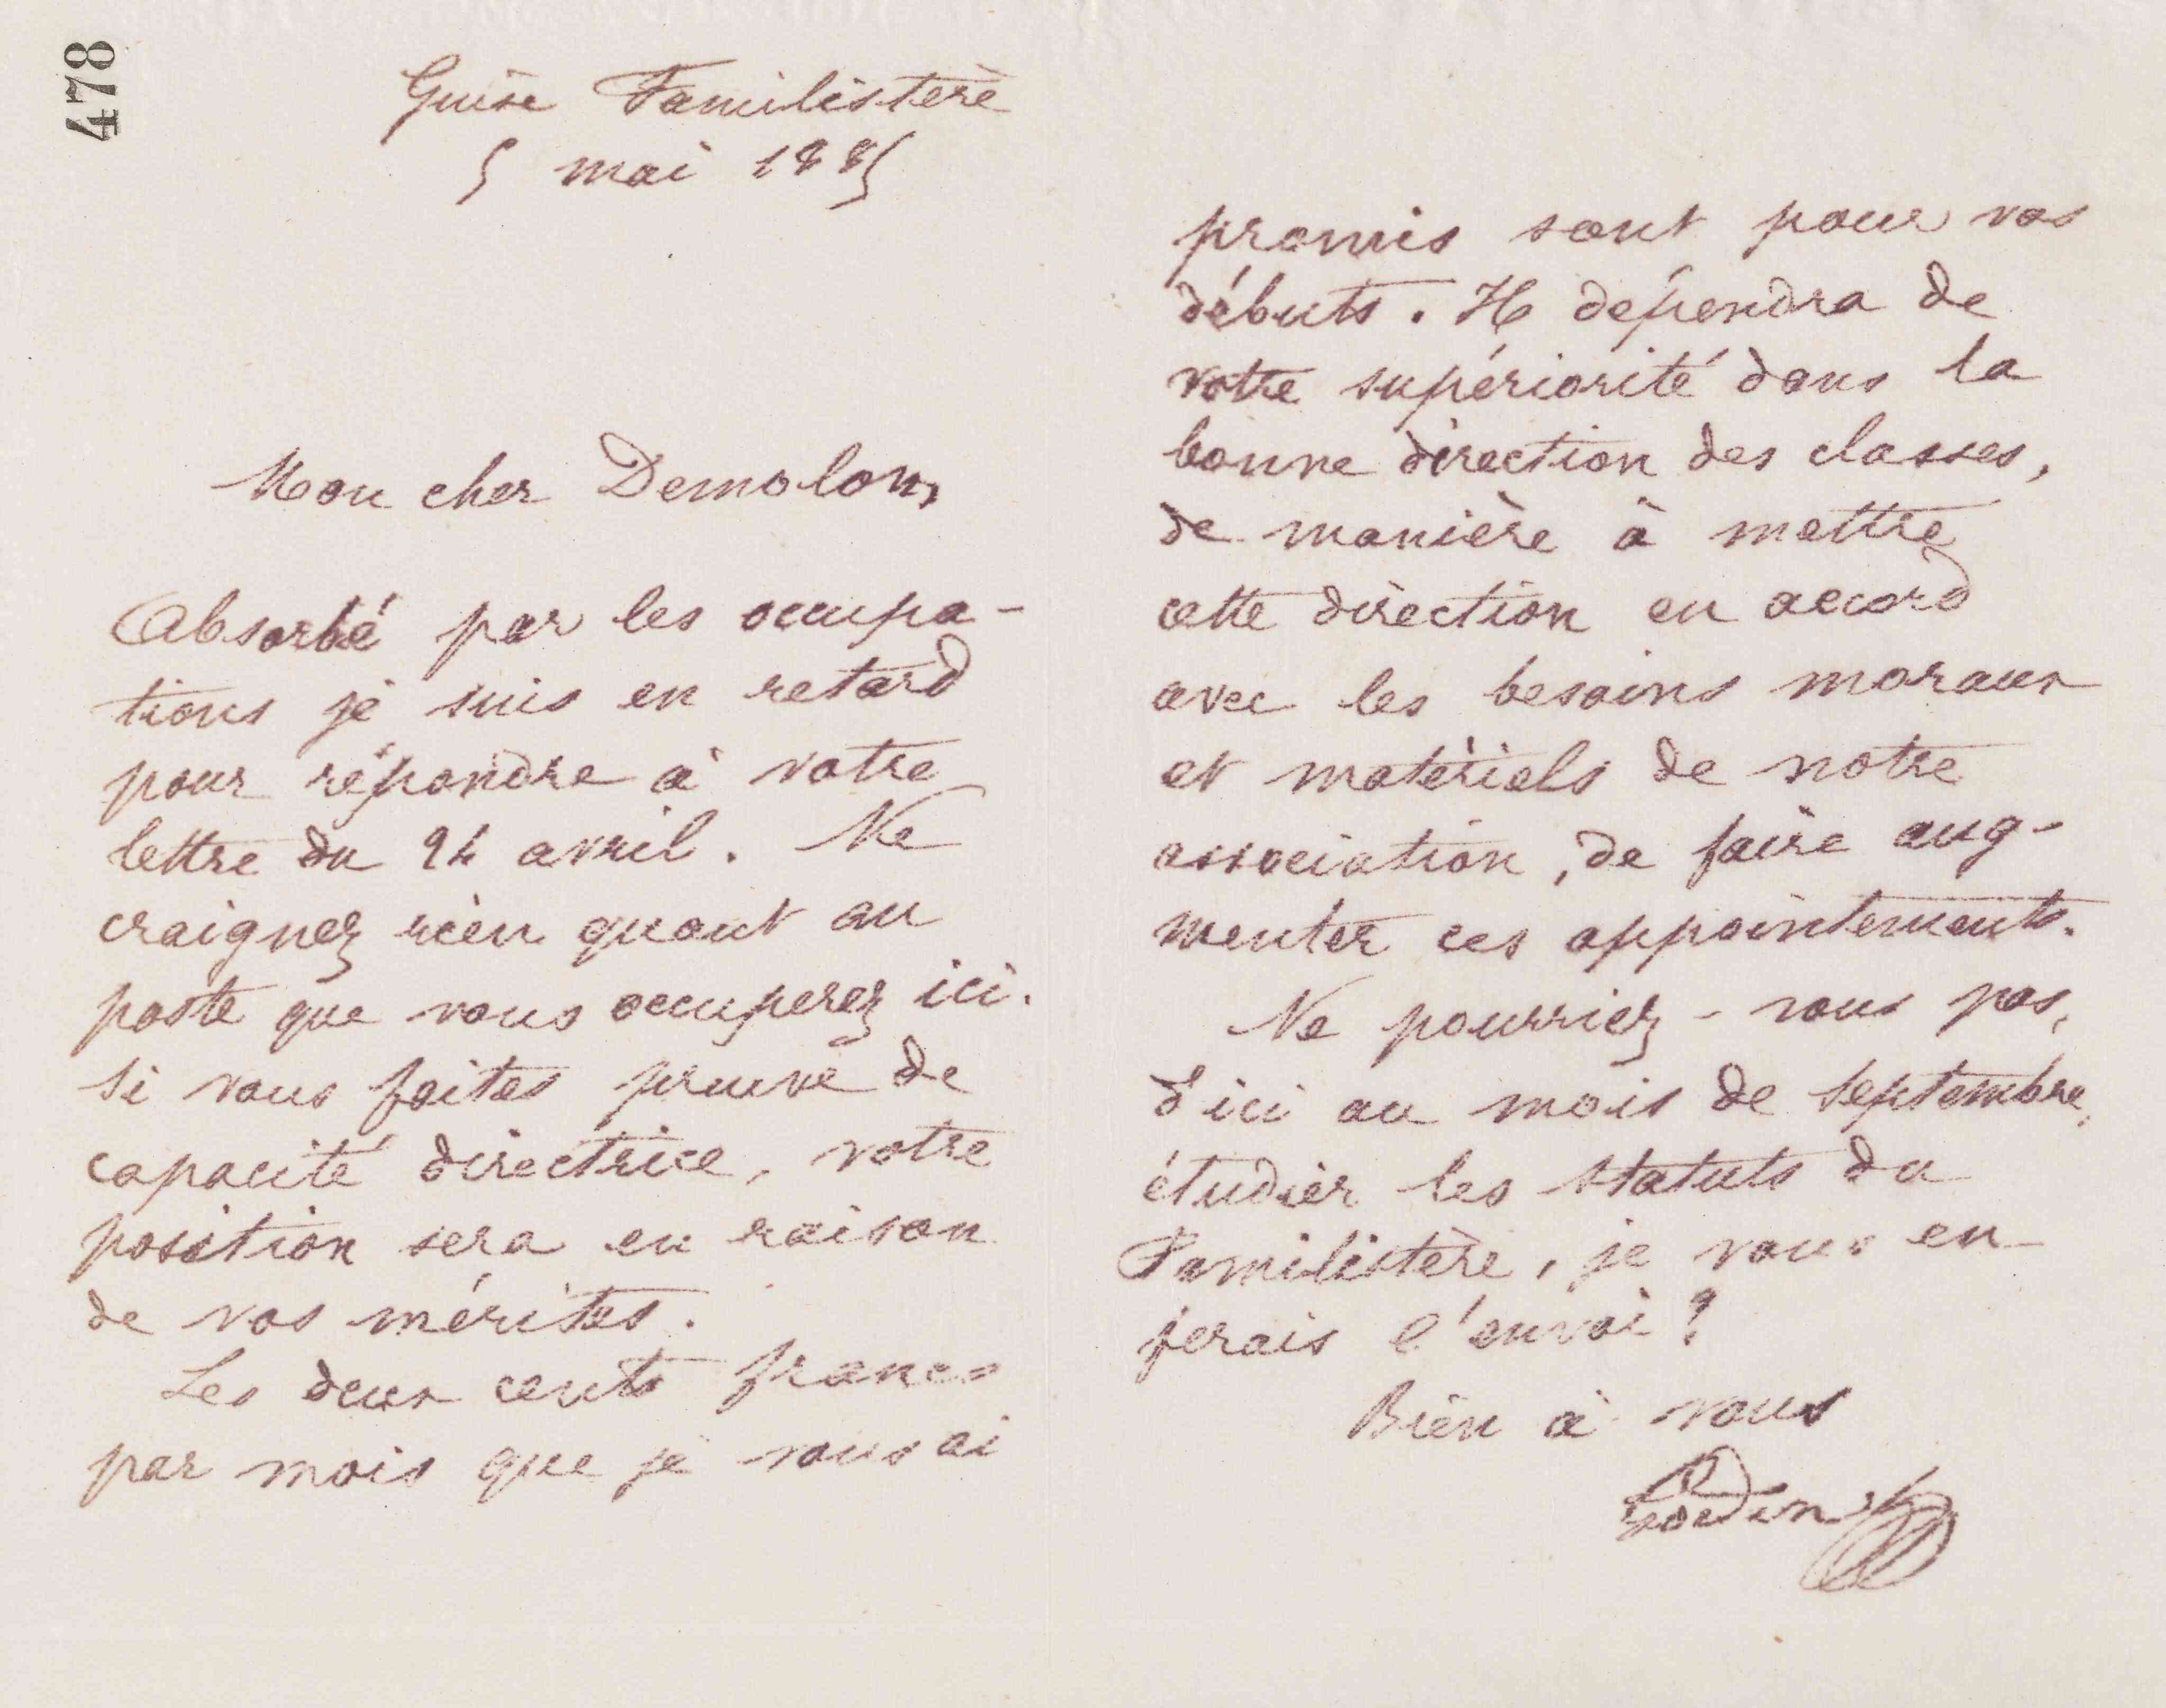 478
Guise Familistère
5 mai 1885
Mon cher Demolon,
Absorbé par les occupa-
tions je suis en retard
pour répondre à votre
lettre du 24 avril. Ne
craignez rien quant au
poste que vous occuperez ici.
Si vous faites preuve de
capacité directrice, votre
position sera en raison
de vos mérites.
Les deux cents francs
par mois que je vous ai
promis sont pour vos
débuts. Il dépendra de
votre supériorité dans la
bonne direction des classes,
de manière à mettre
cette direction en accord
avec les besoins moraux
et matériels de notre
association, de faire aug-
menter ces appointements.
Ne pourriez-vous pas,
d'ici au mois de Septembre,
étudier les statuts du
Familistère, je vous en
ferais l'envoi ?
Bien à vous
Godin